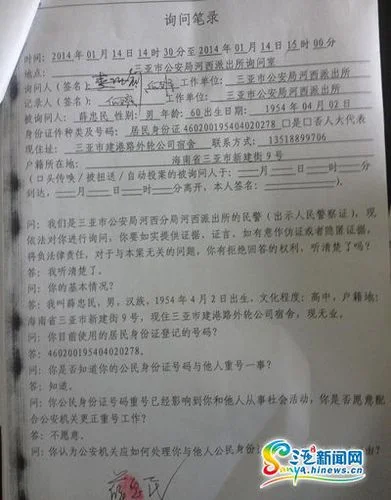 询问笔录
时间：2014 年 01 月 14 日 14 时 30 分至 2014 年 01 月 14 日 15 时 00 分
地点：三亚市公安局河西派出所询问室
询问人（签名）：工作单位：三亚市公安局河西派出所
记录人（签名）：工作单位：三亚市公安局河西派出所
被询问人：薛忠民 性别：男 年龄：60 出生日期：1954 年 04 月 02 日
身份证件种类及号码：居民身份证 460200195404020278 □是□否人大代表
现住址：三亚市建港路外轮公司宿舍 联系方式：13518899706
户籍所在地：海南省三亚市新建街 9 号
（口头传唤/被扭送/自动投案的被询问人于：__月__日__时__分
到达，__月__日__时__分离开，本人签名：______）。
问：我们是三亚市公安局河西分局河西派出所的民警（出示人民警察证），现
依法对你进行询问，你要如实提供证据、证言，如有意作伪证或者隐匿证据，
将负法律责任，对于与本案无关的问题，你有拒绝回答的权利，听清楚了吗？
答：我听清楚了。
问：你的基本情况？
答：我叫薛忠民，男，汉族，1954 年 4 月 2 日出生，文化程度：高中，户籍地：
海南省三亚市新建街 9 号，现住三亚市建港路外轮公司宿舍，现无业。
问：你目前使用的居民身份证登记的号码？
答：460200195404020278。
问：你是否知道你的公民身份证号码与他人重号一事？
答：知道。
问：你公民身份证号码重号已经影响到你和他人从事社会活动，你是否愿意配
合公安机关更正重号工作？
答：不愿意。
问：你认为公安机关应如何处理你与他人公民身份
由？
薛忠民
三亚新闻网
Sanya.hinews.cn